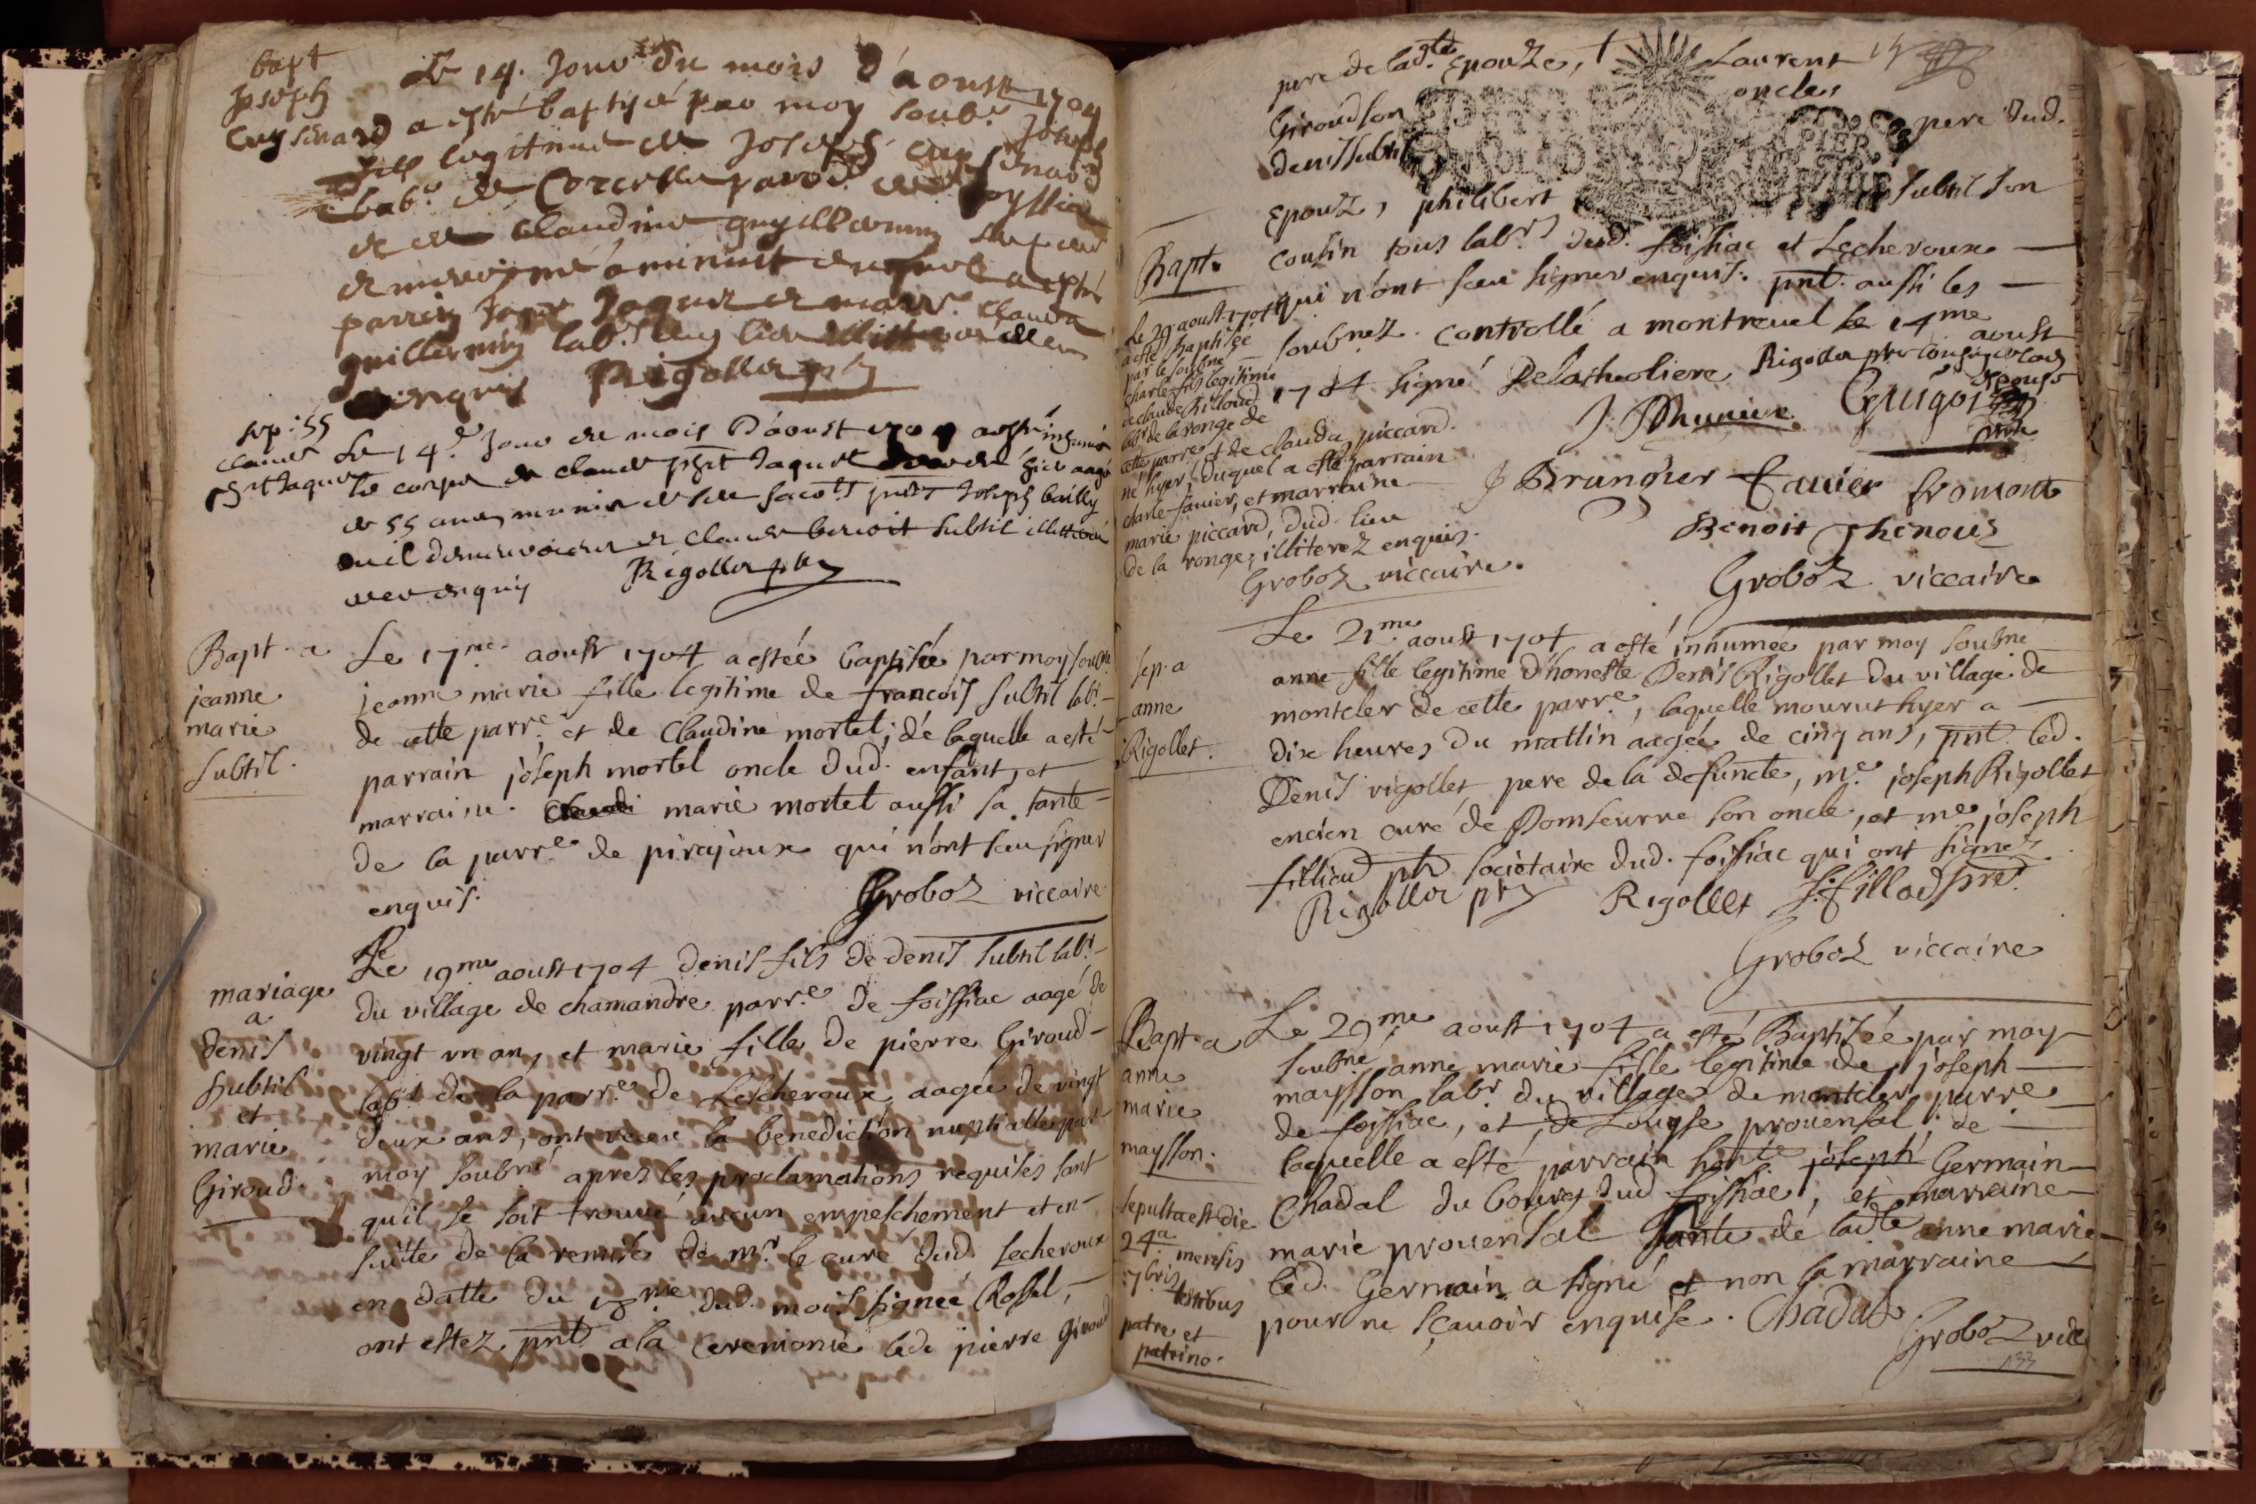 bapt
Joseph
Cuysinard
Le 14. Jour du mois d'aoust 1704
a esté baptisé par moy soub.e Joseph
fils legitime de Joseph Cuysinard
lab.r de Corcelle parois.
et de Claudine guyllermin
et
parrin Jaquet et marr.e Clauda
guillermin lab.rs
enquis Rigollet ptre
sep: 55
claude
petit Jaquet
Le 14.e Jour du mois D'aoust 1704 a esté inhumé
le corps de claude petit Jaquet aagé
de 55 ans, munie de ses sacrts pnts Joseph bailly
et claude benoit subtil illitteré
enquis Rigollet ptre
Bapt. a
jeanne
marie
subtil.
Le 17.me aoust 1704 a estée baptisée par moy soubné
jeanne marie fille legitime de francois subtil lab.r
de cette parr.e et de Claudine mortel; de laquelle a esté
parrain joseph mortel oncle dud. enfant, et
marraine. marie mortel aussi sa tante
de la parr.e de pirajoux qui n'ont sceu signer
enquis.
Groboz viccaire
mariage
a
denis
subtil
et
marie
Giroud
Le 19.me aoust 1704 denis fils de denis subtil lab.r
du village de chamandre parr.e de foissiac aagé de
vingt un an, et marie fille de pierre Giroud
lab.r de la parr.e de Lescheroux aagée de vingt
deux ans, ont receu la benediction nuptialle par
moy soubné apres les proclamations requises sant
qu'il se soit trouvé aucun empeschement et en-
suitte de la remise de mr. le curé dud. Lecheroux
en datte du 18.me dud. mois signée Rossel,
ont estez pnt a la ceremonie led. pierre Giroud
pere de lad.te Epouze, † Laurent
Giroud son oncle,
denis subtil pere dud.
Epoux, philibert subtil son
cousin tous lab.rs dud. foissiac et Lecheroux
qui n'ont sceu signer enquis. pnt. aussi les
soubnez. controllé a montrevel le 14me aoust
1704 signé Delatheoliere Rigollet ptre
J. Munier Guigot
J Brunger favier fromont
Benoit Thenoud
Groboz viccaire
Bapt.
Le 29 aoust 1704
a esté Baptisé
par le soubné
charle fils legitime
de claude Billoud
lab.r de la ronge de
cette parre et de clauda piccard.
né hyer, duquel a esté parrain
charle favier, et marraine
marie piccard, dud. lieu
de la ronge; illiterez enquis.
Groboz viccaire.
sep. a
anne
Rigollet.
Le 21me aoust 1704 a esté inhumée par moy soubné
anne fille legitime d'honeste Denis Rigollet du village de
montcler de cette parr.e, laquelle mourut hyer a
dix heures du mattin aagée de cinq ans, pnt led.
Denis rigollet pere de la defuncte, me. joseph Rigollet
encien curé de Domseurre son oncle, et me joseph
filliod ptre societaire dud. foissiac qui ont signez
Rigollet ptre Rigollet J. filliod pre.
Groboz viccaire
Bapt. a
anne
marie
maysson.
sepulta est die
24a mensis
7bris
testibus
patre et
patrino.
Le 29me aoust 1704 a esté Baptisée par moy
soubné anne marie fille legitime de joseph
maysson labr du village de montcler parre
de foissiac, et de Louyse prouensal; de
laquelle a esté parrain honte. joseph Germain
Chadal du bourg dud foissiac, et marraine
marie prouensal tante de ladte anne marie
led. Germain a signé et non la marraine
pour ne sçavoir enquise. Chadal
Groboz vicc
133